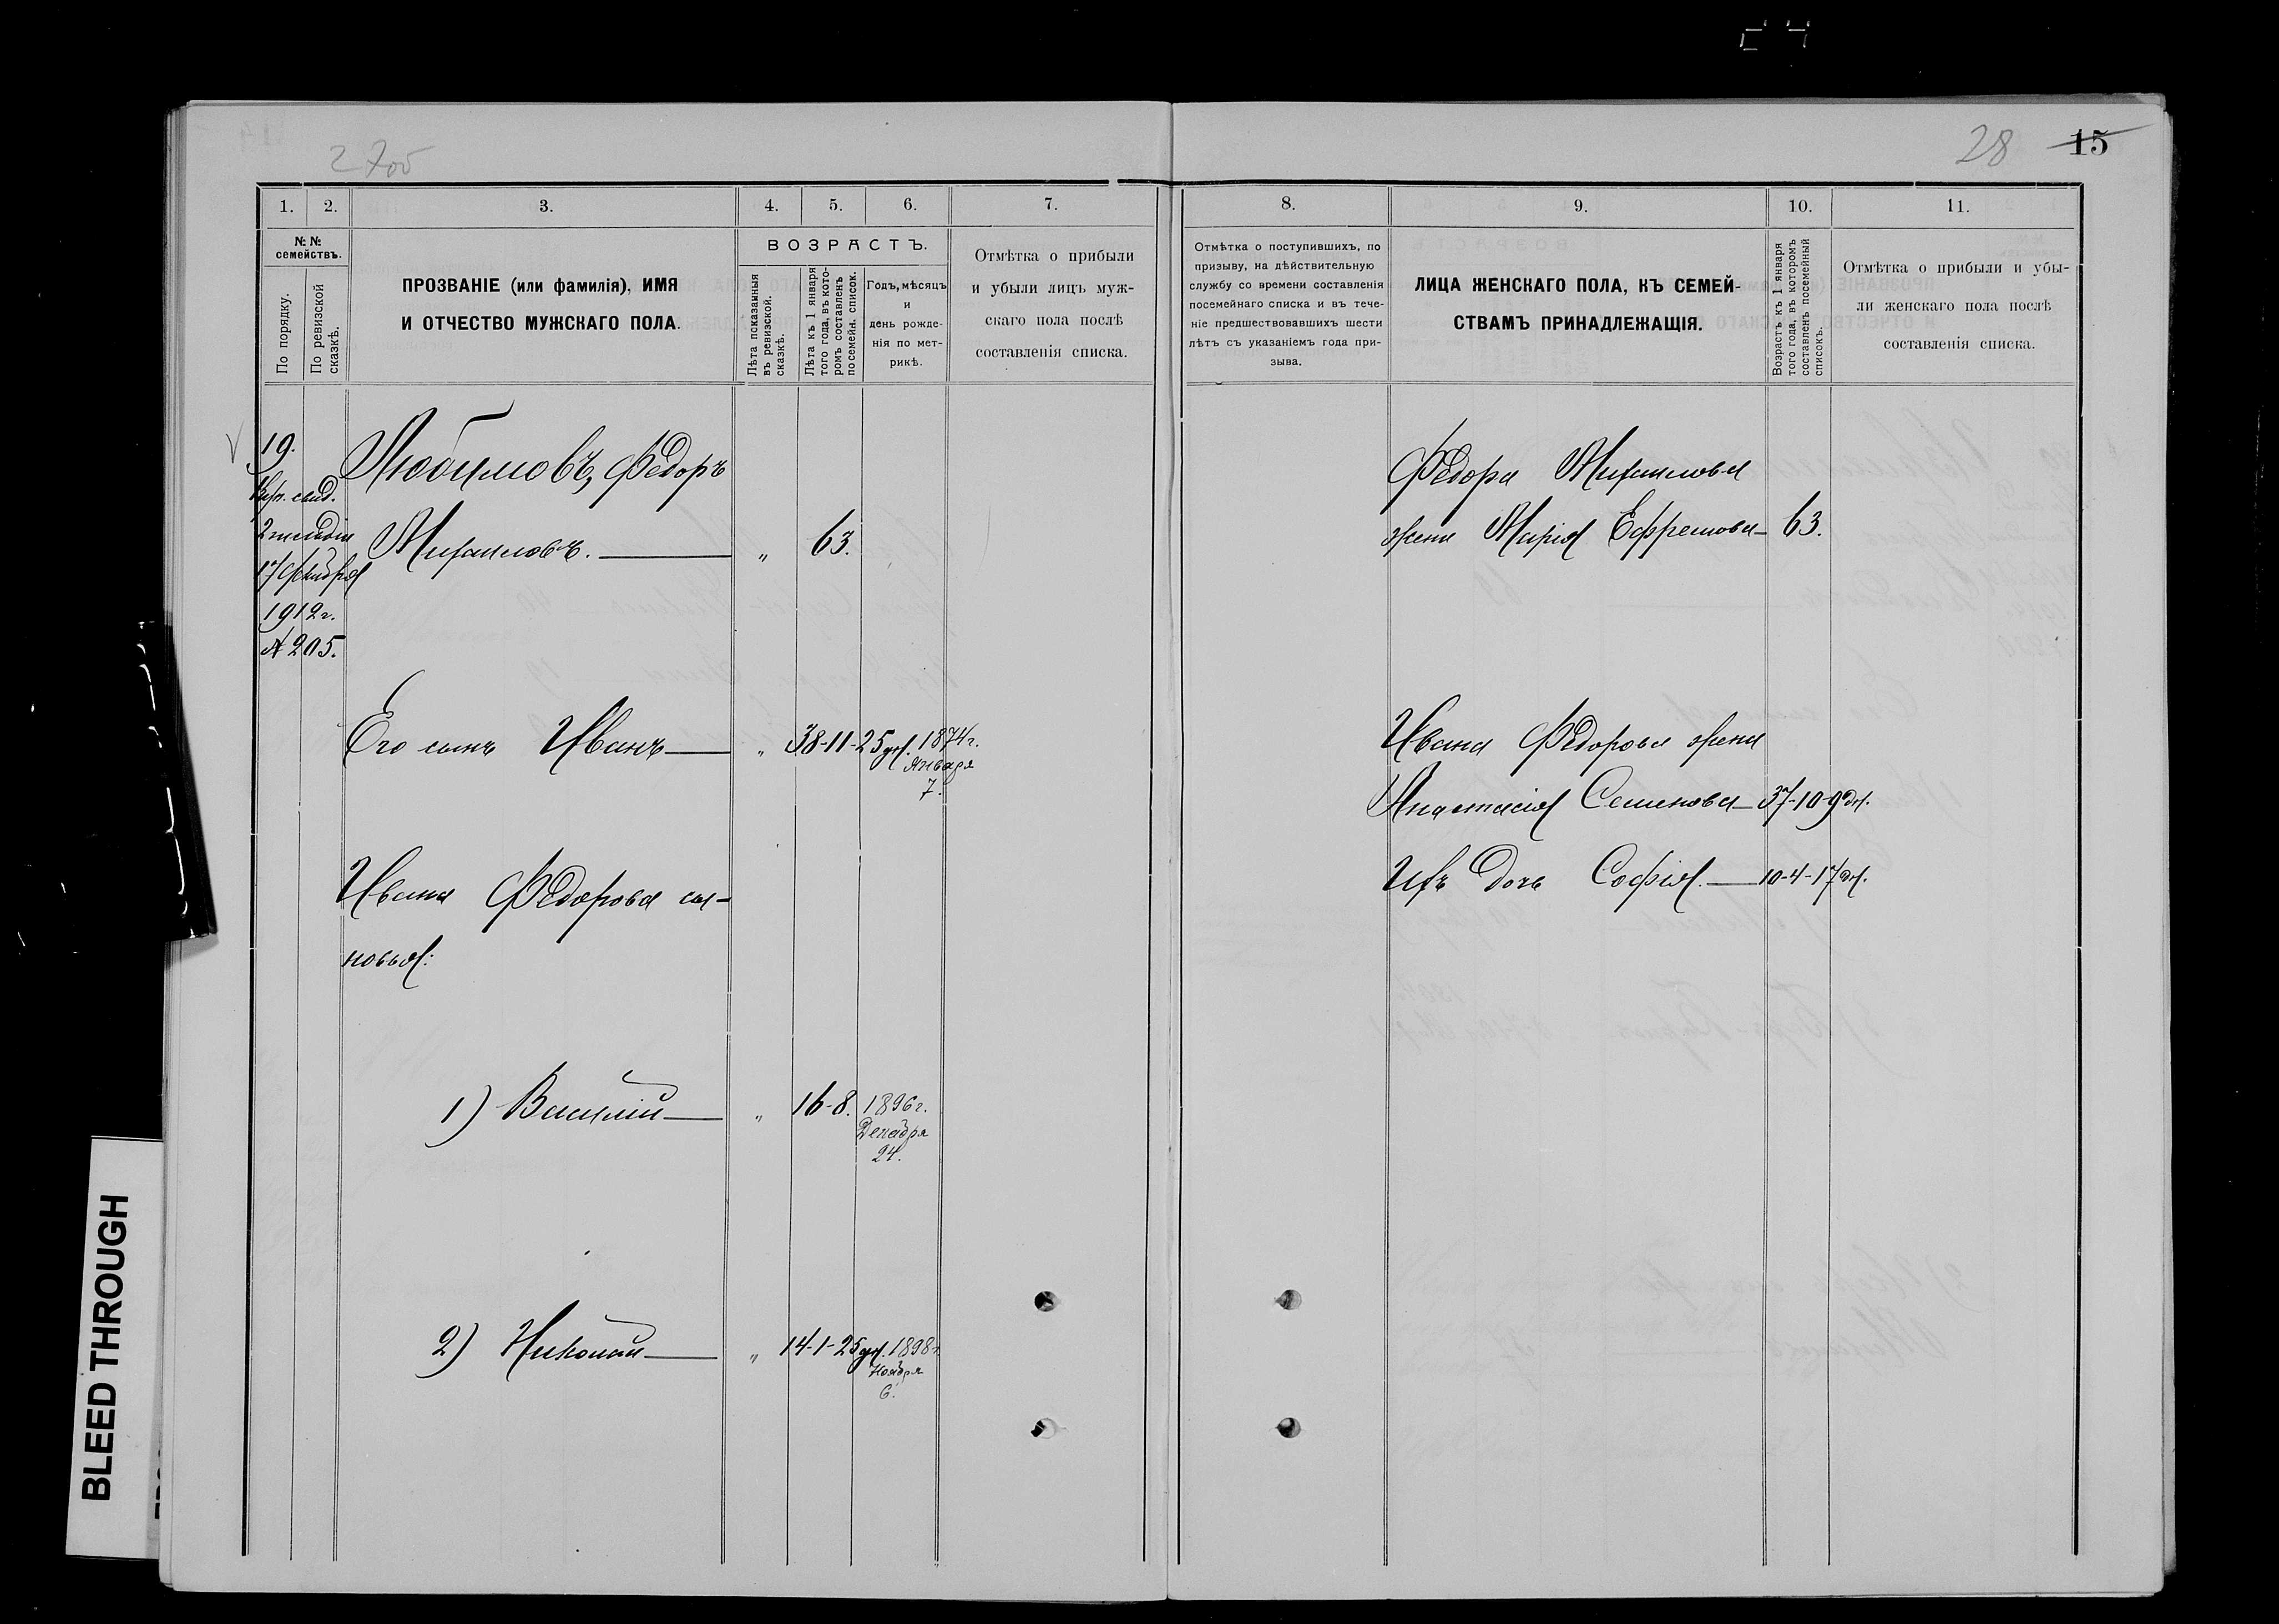 27об
28 15
1. 2. 3. 4. 5. 6. 7.
№ №
семействъ.
По порядку.
По ревизской
сказкѣ.
ПРОЗВАНІЕ (или фамилія), ИМЯ
И ОТЧЕСТВО МУЖСКАГО ПОЛА.
ВОЗРАСТЪ.
Лѣта показанныя
въ ревизской.
сказкѣ.
Лѣта къ 1 января
того года, въ кото-
ромъ составленъ
посемейн. списокъ.
Годъ, мѣсяцъ
и
день рожде-
нія по мет-
рикѣ.
Отмѣтка о прибыли
и убыли лицъ муж-
скаго пола послѣ
составленія списка.
19.
2
17
1912г.
№ 205.
Любимовъ, Федоръ
Михаиловъ. — „ 63.
Его сынъ Иванъ — „ 38-11-25дн. 1874г.
Января
7.
Ивана Федорова сы-
новья:
1) Василій — „ 16-8. 1896г.
Декабря
24.
2) Николай — „ 14-1-25дн. 1898г.
Ноября
6.
8. 9. 10. 11.
Отмѣтка о поступившихъ, по
призыву, на дѣйствительную
службу со времени составленія
посемейнаго списка и въ тече-
ніе предшествовавшихъ шести
лѣтъ съ указаніемъ года при-
зыва.
ЛИЦА ЖЕНСКАГО ПОЛА, КЪ СЕМЕЙ-
СТВАМЪ ПРИНАДЛЕЖАЩІЯ.
Возрастъ къ 1 января
того года, въ которомъ
составленъ посемейный
списокъ.
Отмѣтка о прибыли и убы-
ли женскаго пола послѣ
составленія списка.
Федора Михаилова
жена Марія Ефремова — 63.
Ивана Федорова жена
Анастасія Семенова — 37-10-9дн.
Ихъ дочь Софія. — 10-4-17дн.
BLEED THROUGH